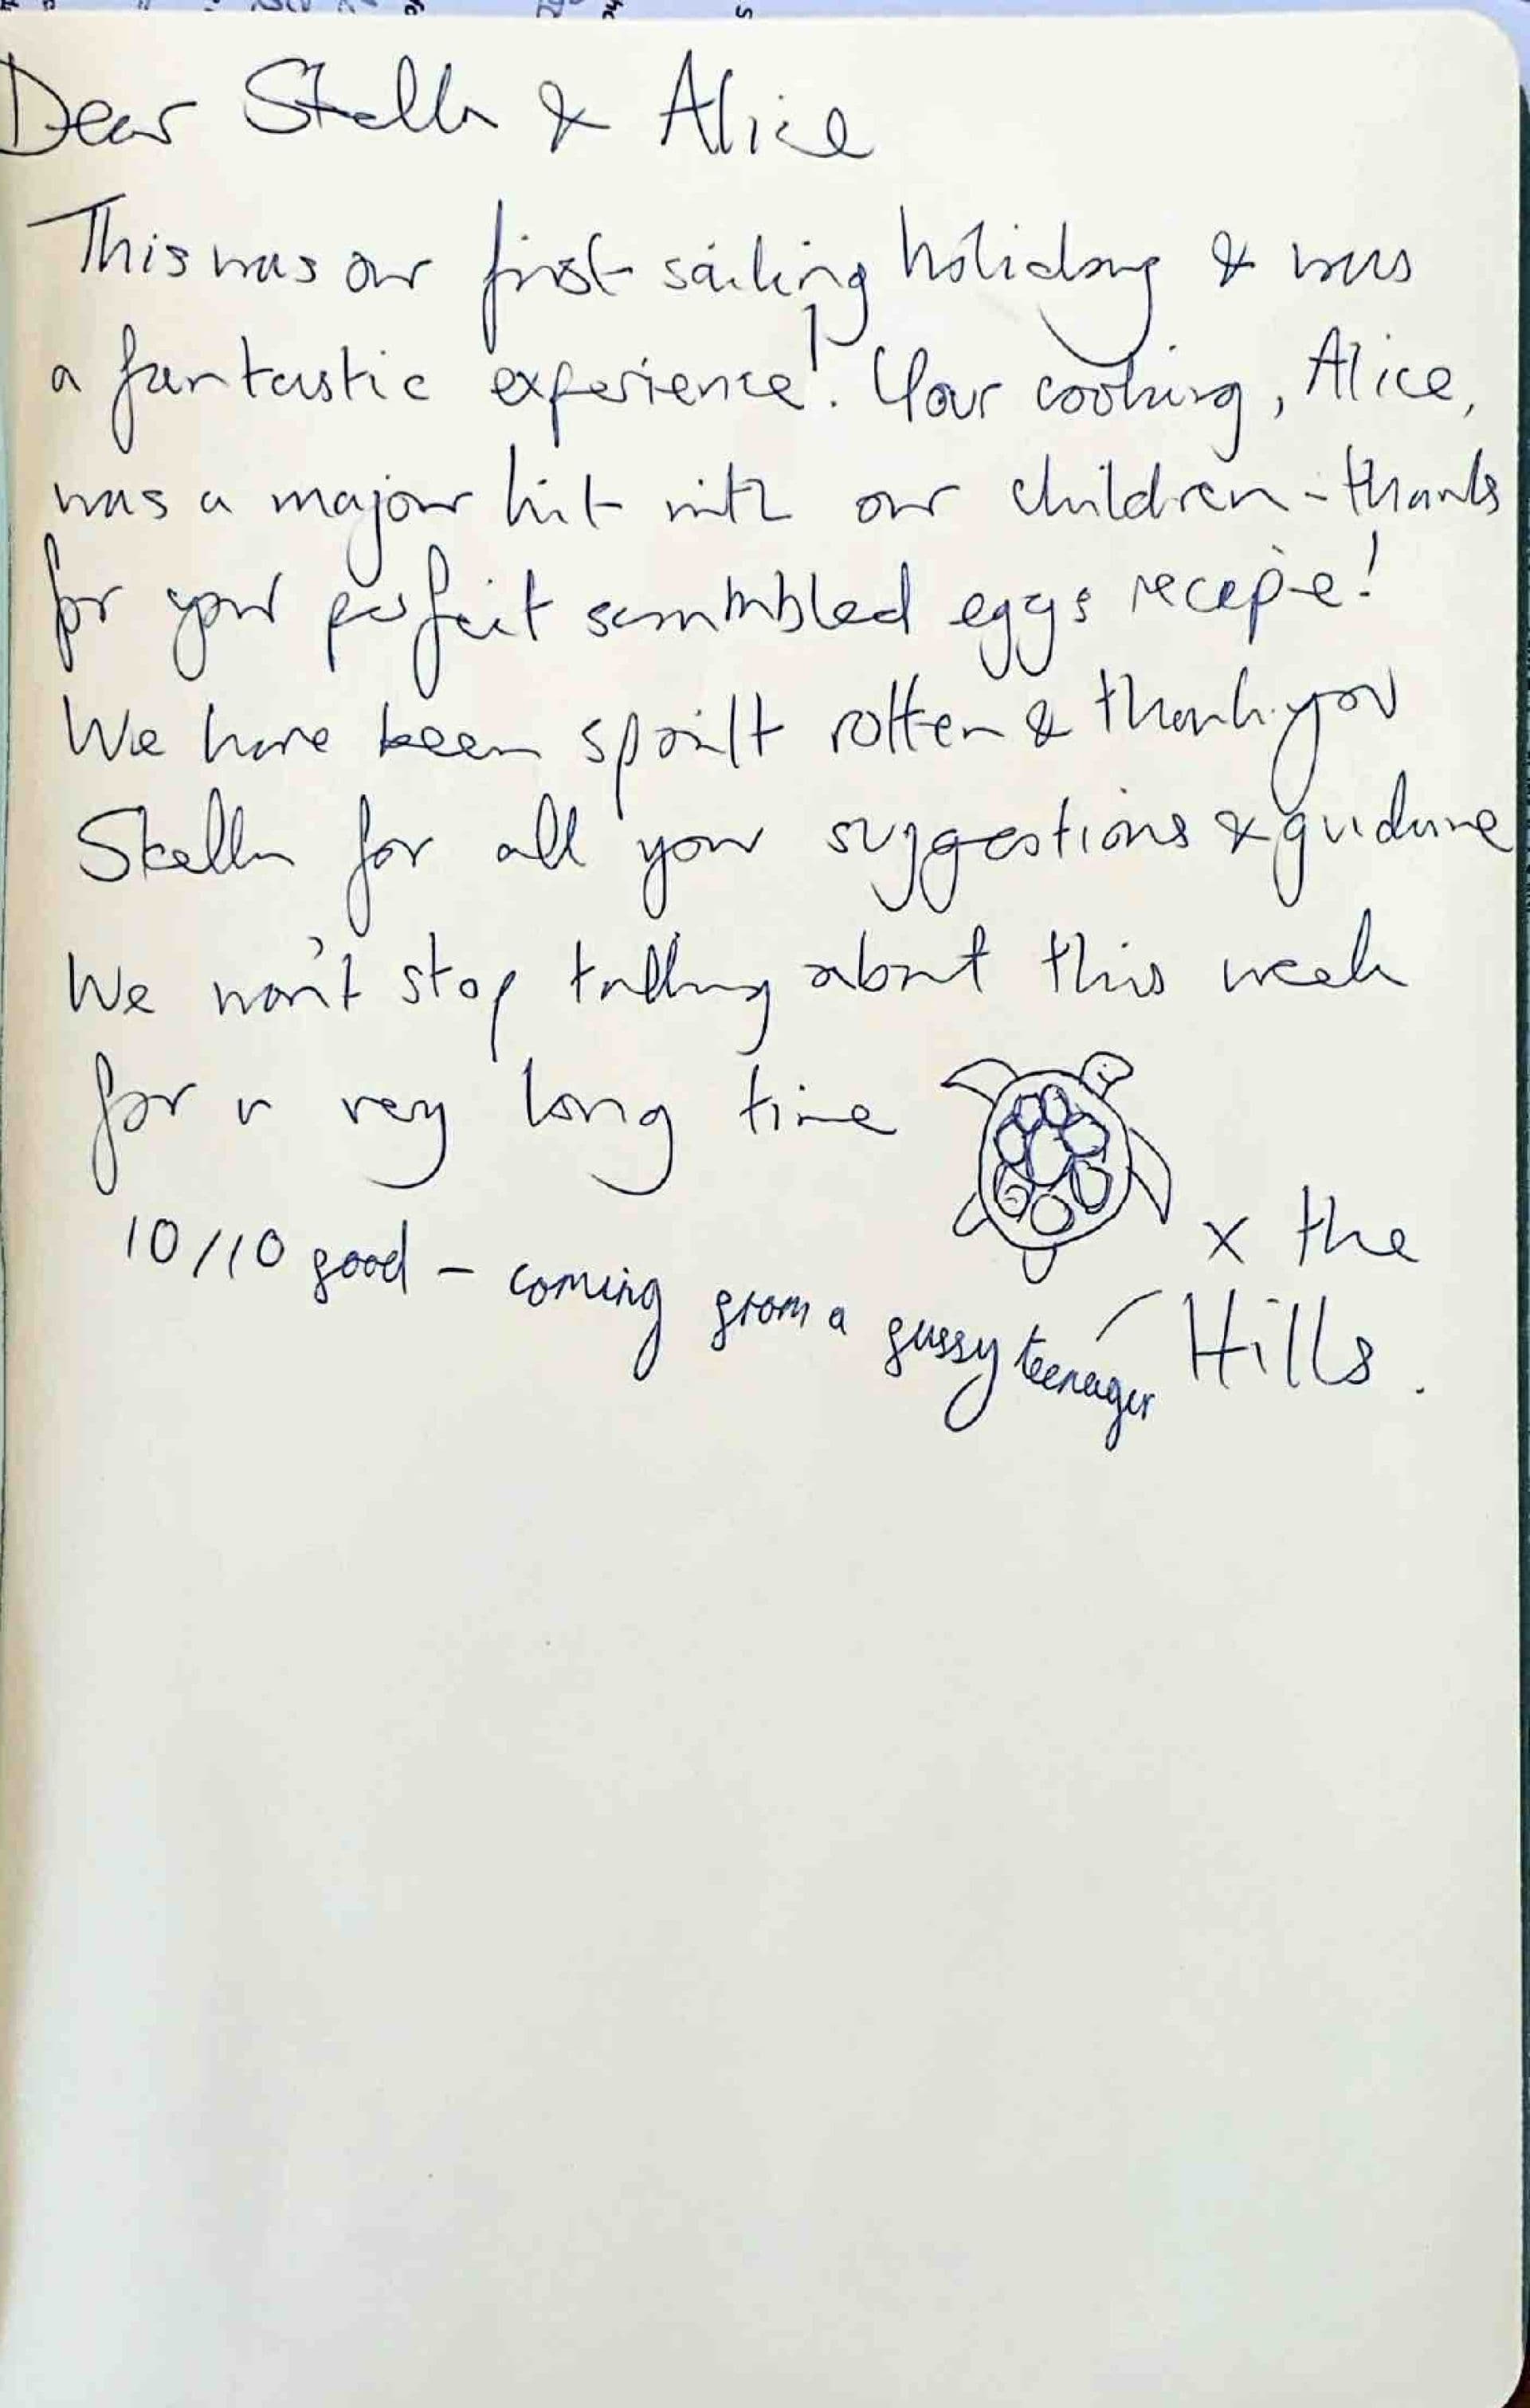 Dear Stella & Alice
This was our first sailing holiday & was
a fantastic experience! Your cooking, Alice,
was a major hit with our children - thanks
for your perfect scrambled eggs recepie!
We have been spoilt rotten & thank you
Stella for all your suggestions & guidance
We won't stop talking about this week
for a very long time
10/10 good - coming from a fussy teenager
x the
Hills.